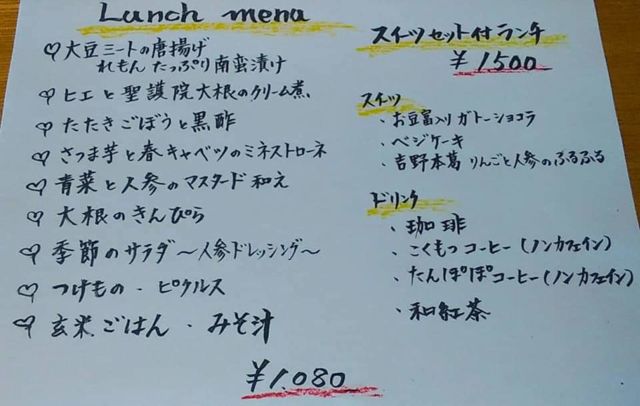 Lunch menu
♡大豆ミートの唐揚げ
れもん たっぷり南蛮漬け
♡ヒエと聖護院大根のクリーム煮
♡たたきごぼうと黒酢
♡さつま芋と春キャベツのミネストローネ
♡青菜と人参のマスタード和え
♡大根のきんぴら
♡季節のサラダ〜人参ドレッシング〜
♡つけもの・ピクルス
♡玄米ごはん・みそ汁
¥1,080
スイーツセット付ランチ
¥1500
スイーツ
・お豆富入りガトーショコラ
・ベジケーキ
・吉野本葛 りんごと人参のぷるぷる
ドリンク
・珈琲
・こくもつコーヒー(ノンカフェイン)
・たんぽぽコーヒー(ノンカフェイン)
・和紅茶